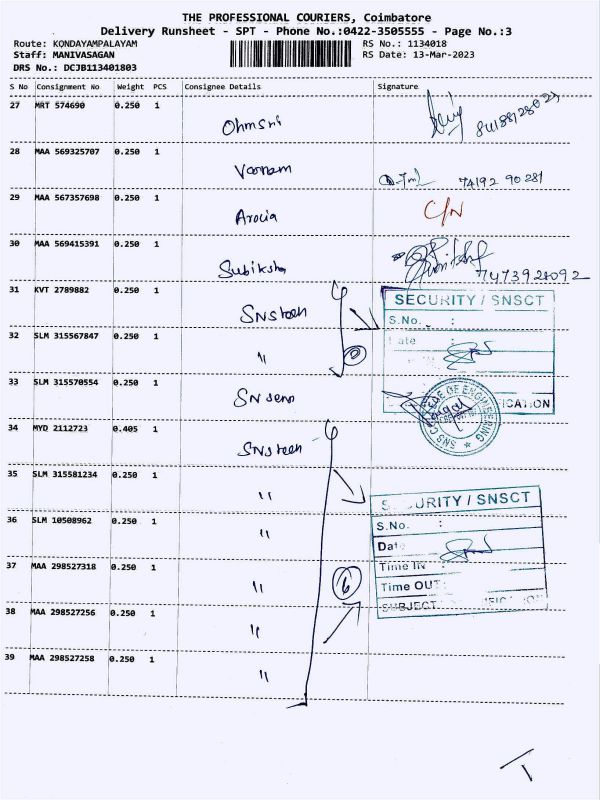 THE PROFESSIONAL COURIERS, Coimbatore
Delivery Runsheet - SPT - Phone No.:0422-3505555 - Page No.:3
Route: KONDAYAMPALAYAM RS No.: 1134018
Staff: MANIVASAGAN RS Date: 13-Mar-2023
DRS No.: DCJB113401803
S No Consignment No Weight PCS Consignee Details Signature
27 MRT 574690 0.250 1
Ohmsri
28 MAA 569325707 0.250 1
74192 90281
29 MAA 567357698 0.250 1
Arocia C/N
30 MAA 569415391 0.250 1
Subiksha 7473928092
31 KVT 2789882 0.250 1
SNS tech
SECURITY / SNSCT
S.No. :
32 SLM 315567847 0.250 1
"
33 SLM 315570554 0.250 1
34 MYD 2112723 0.405 1
SNS tech
35 SLM 315581234 0.250 1
"
SECURITY / SNSCT
S.No. :
36 SLM 10508962 0.250 1
"
Date
37 MAA 298527318 0.250 1
" 6
Time IN :
Time OUT :
SUBJECT
38 MAA 298527256 0.250 1
"
39 MAA 298527258 0.250 1
"